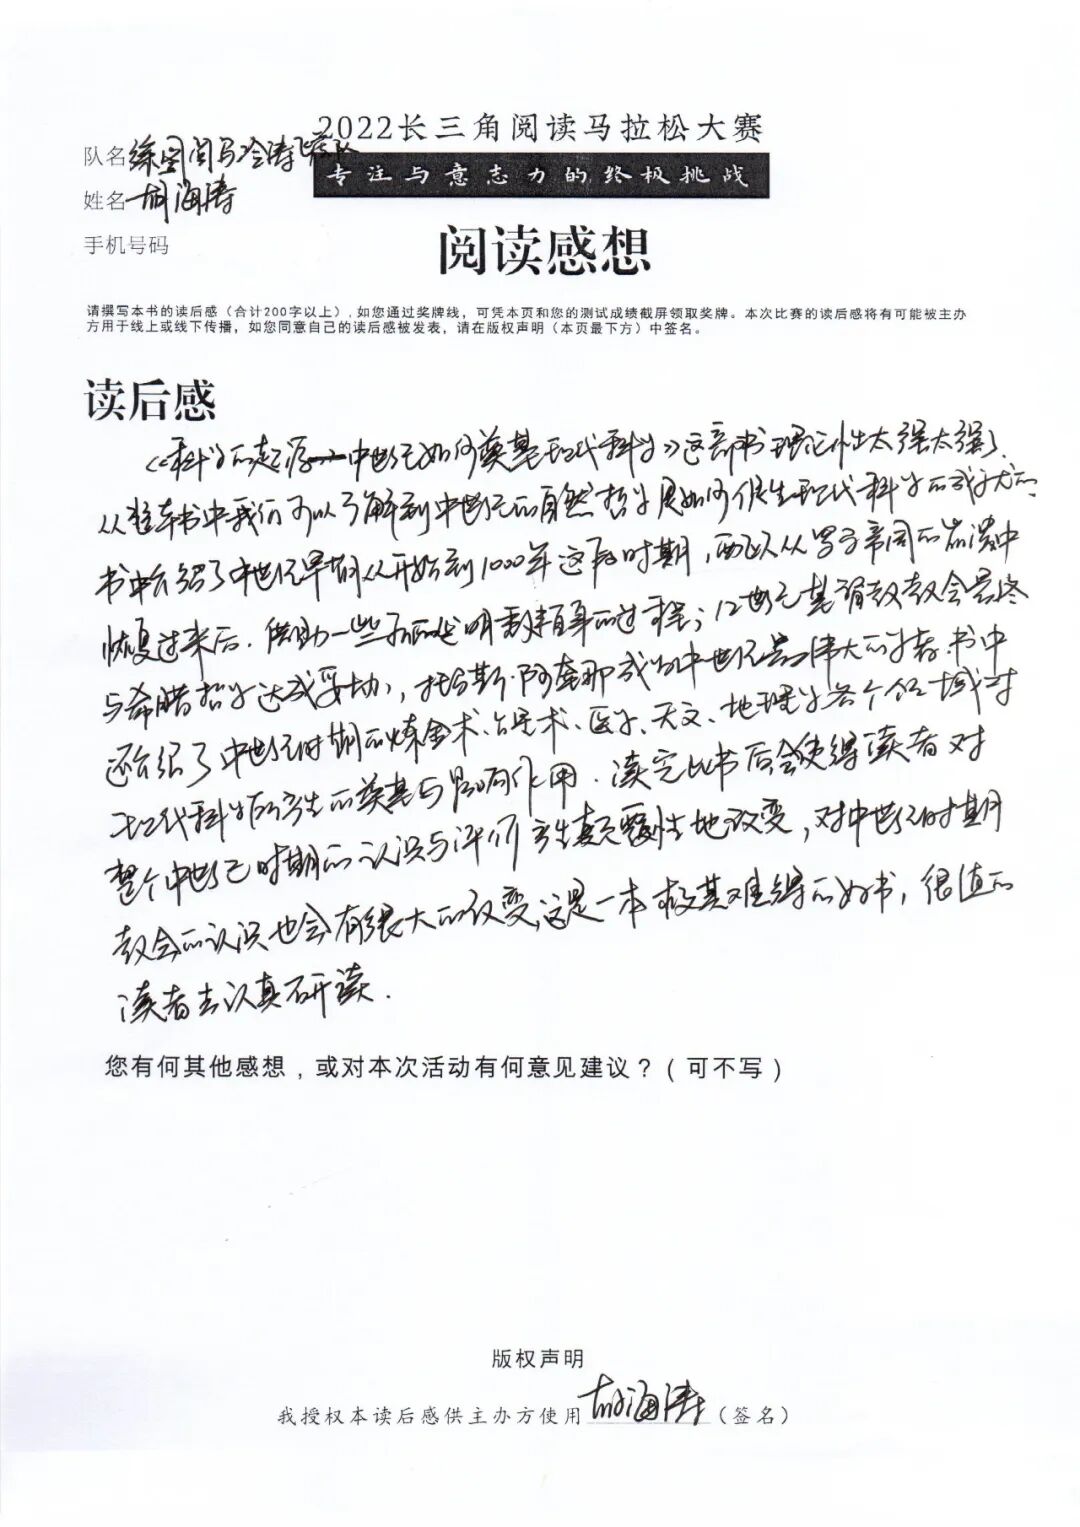 2022长三角阅读马拉松大赛
队名 练图阅马冷涛飞套队
专注与意志力的终极挑战
姓名 胡海涛
手机号码
阅读感想
请撰写本书的读后感（合计200字以上），如您通过奖牌线，可凭本页和您的测试成绩截屏领取奖牌。本次比赛的读后感将有可能被主办
方用于线上或线下传播，如您同意自己的读后感被发表，请在版权声明（本页最下方）中签名。
读后感
《科学的起源 中世纪如何奠基现代科学》这部书理论性太强太强，
从这本书中我们可以了解到中世纪的自然哲学是如何催生现代科学的成就的，
书中介绍了中世纪早期从开始到1000年这段时期，西欧从罗马帝国的崩溃中
恢复过来后，借助一些 发明 的过程；12世纪基督教教会最终
与希腊哲学达成妥协，托马斯·阿奎那成为中世纪最伟大的学者。书中
还介绍了中世纪时期的炼金术、占星术、医学、天文、地理学各个领域对
现代科学的产生的奠基与影响作用。读完此书后会使得读者对
整个中世纪时期的认识与评价产生颠覆性地改变，对中世纪时期
教会的认识也会有很大的改变，这是一本极其难得的好书，很值的
读者去认真研读．
您有何其他感想，或对本次活动有何意见建议？（可不写）
版权声明
我授权本读后感供主办方使用 胡海涛 （签名）